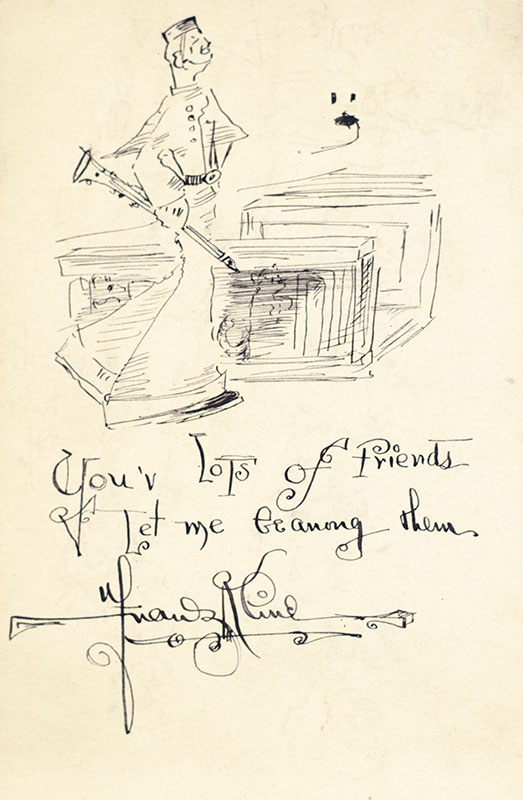 You'v Lots of Friends
Let me be among them
Frank